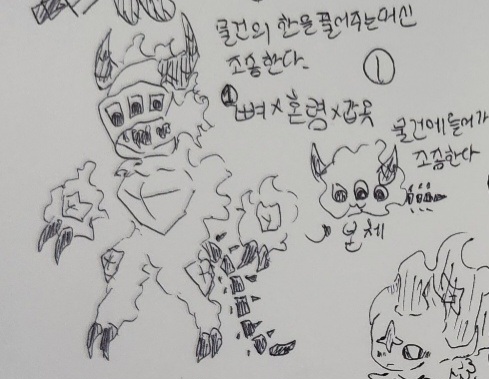 물건의 한을 풀어주는대신
조종한다.
①
① 뼈×혼령×갑옷
물건에들어가
조종한다
본체